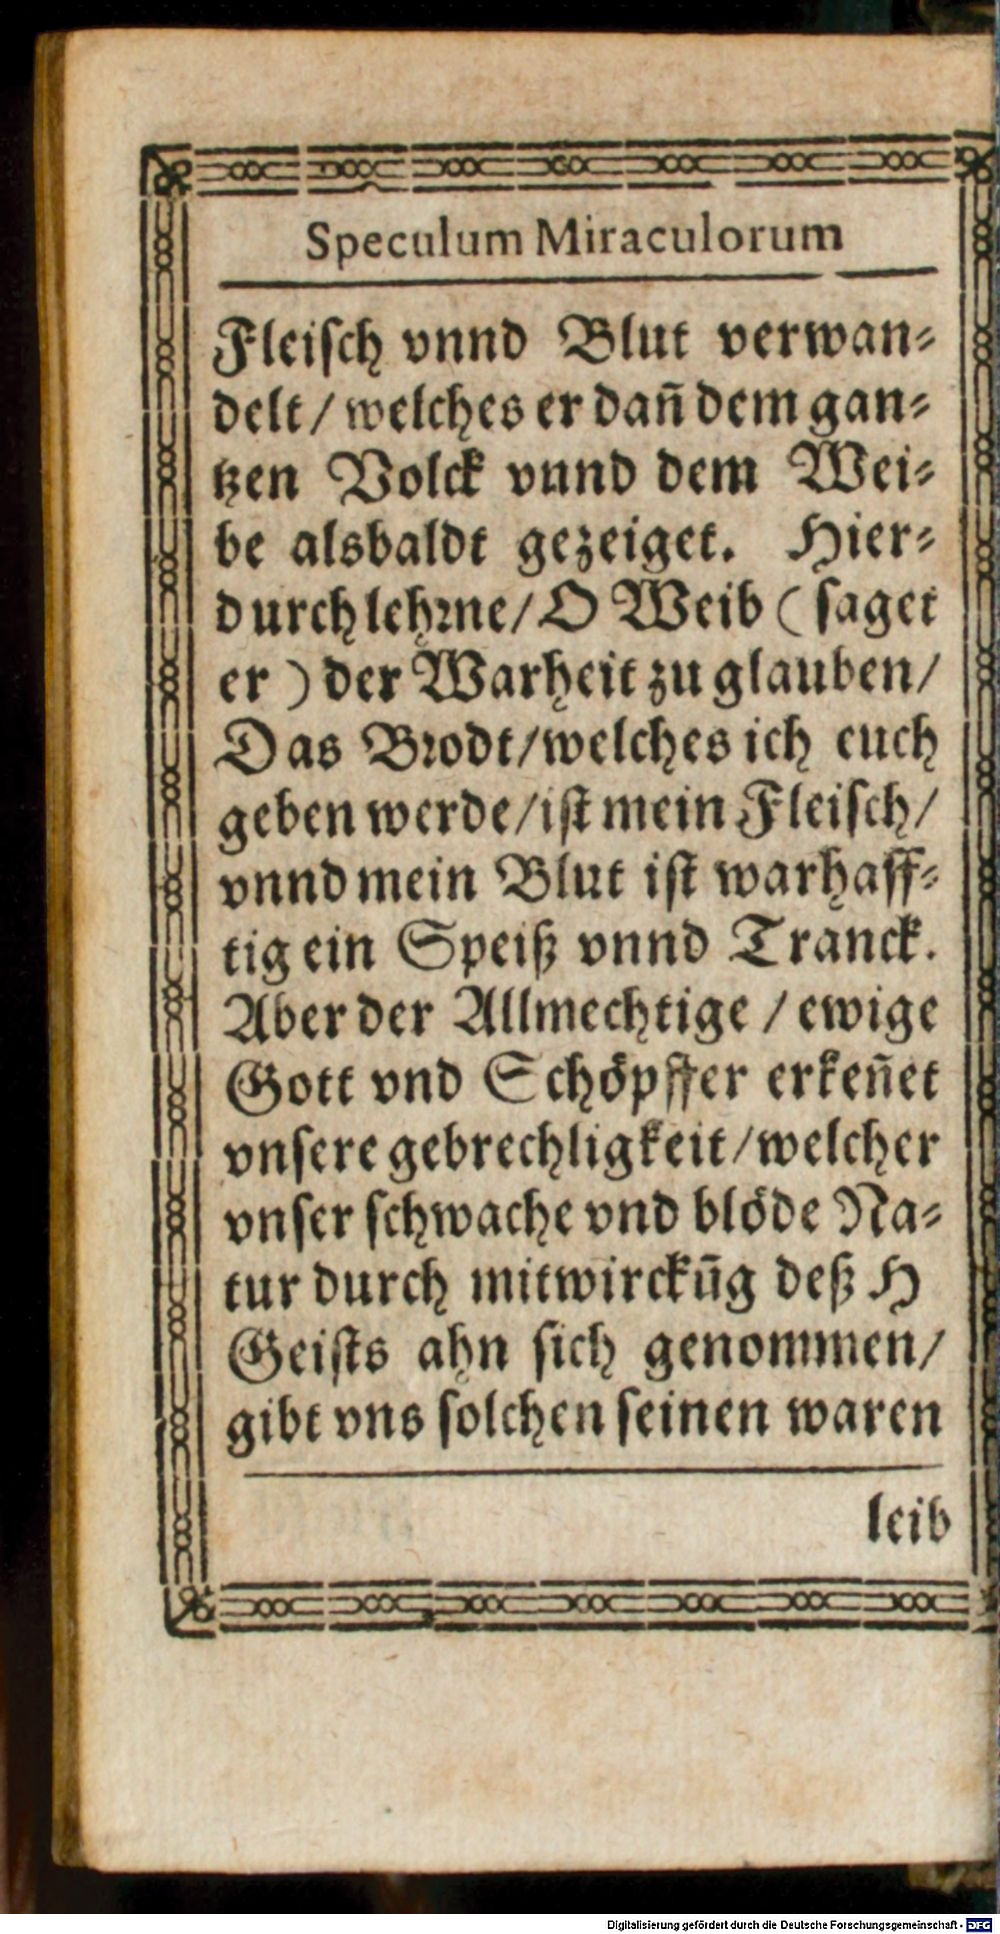 Speculum Miraculorum
Fleiſch vnnd Blut verwan⸗
delt / welches er dañ dem gan⸗
tzen Volck vnnd dem Wei⸗
be alsbaldt gezeiget. Hier⸗
durch lehꝛne / O Weib ( ſaget
er ) der Warheit zu glauben /
Das Bꝛodt / welches ich euch
geben werde / iſt mein Fleiſch /
vnnd mein Blut iſt warhaff⸗
tig ein Speiß vnnd Tranck.
Aber der Allmechtige / ewige
Gott vnd Schöpffer erkeñet
vnſere gebrechligkeit / welcher
vnſer ſchwache vnd blöde Na⸗
tur durch mitwirckūg deß H
Geiſts ahn ſich genommen /
gibt vns ſolchen ſeinen waren
leib
Digitalisierung gefördert durch die Deutsche Forschungsgemeinschaft - DFG